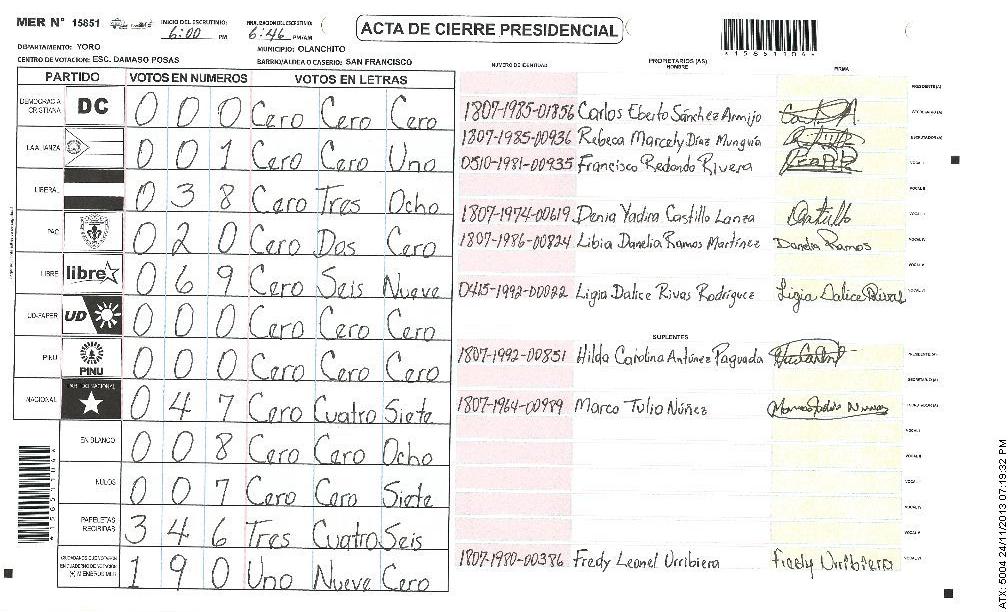 MER N° 15851 INICIO DEL ESCRUTINIO: 6:00 PM FINALIZACION DEL ESCRUTINIO: 6:46 PM/AM
ACTA DE CIERRE PRESIDENCIAL
DEPARTAMENTO: YORO MUNICIPIO: OLANCHITO
CENTRO DE VOTACION: ESC. DAMASO POSAS BARRIO/ALDEA O CASERIO: SAN FRANCISCO
PARTIDO VOTOS EN NUMEROS VOTOS EN LETRAS
DEMOCRACIA CRISTIANA DC 0 0 0 Cero Cero Cero
LA ALIANZA 0 0 1 Cero Cero Uno
LIBERAL 0 3 8 Cero Tres Ocho
PAC 0 2 0 Cero Dos Cero
LIBRE libre 0 6 9 Cero Seis Nueve
UD-FAPER UD 0 0 0 Cero Cero Cero
PINU PINU 0 0 0 Cero Cero Cero
NACIONAL PARTIDO NACIONAL 0 4 7 Cero Cuatro Siete
EN BLANCO 0 0 8 Cero Cero Ocho
NULOS 0 0 7 Cero Cero Siete
PAPELETAS RECIBIDAS 3 4 6 Tres Cuatro Seis
CIUDADANOS QUE VOTARON EN CUADERNO DE VOTACION (+) MIEMBROS MER 1 9 0 Uno Nueve Cero
NUMERO DE IDENTIDAD PROPIETARIOS (AS) NOMBRE FIRMA
PRESIDENTE(A)
1807-1985-01856 Carlos Eberto Sánchez Armijo SECRETARIO(A)
1807-1985-00936 Rebeca Marcely Díaz Munguía ESCRUTADOR(A)
0510-1981-00935 Francisco Redondo Rivera VOCAL I
VOCAL II
1807-1974-00619 Denia Yadira Castillo Lanza Castillo
1807-1986-00824 Libia Danelia Ramos Martínez Danelia Ramos
0415-1992-00022 Ligia Dalice Rivas Rodríguez Ligia Dalice Rivas
SUPLENTES
1807-1992-00851 Hilda Carolina Antúnez Paguada PRESIDENTE (A)
SECRETARIO(A)
1807-1964-00979 Marco Tulio Núñez Marco Tulio Nunez ESCRUTADOR(A)
VOCAL I
VOCAL II
1807-1980-00386 Fredy Leonel Urribiera Fredy Urribiera
ATX: 5004 24/11/2013 07:19:32 PM